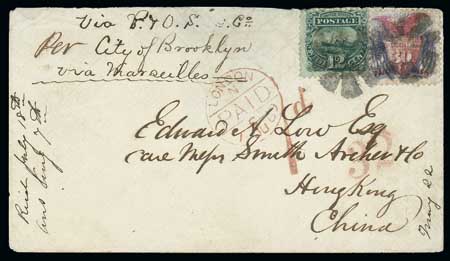 Via P. & O. S. S. Co
Per City of Brooklyn
via Marseilles
LONDON
PAID
12
30
Edward A. Low Esq
care Messrs Smith Archer & Co
32
Hong Kong
China
Recd July 18th
ans Aug 7th
May 22